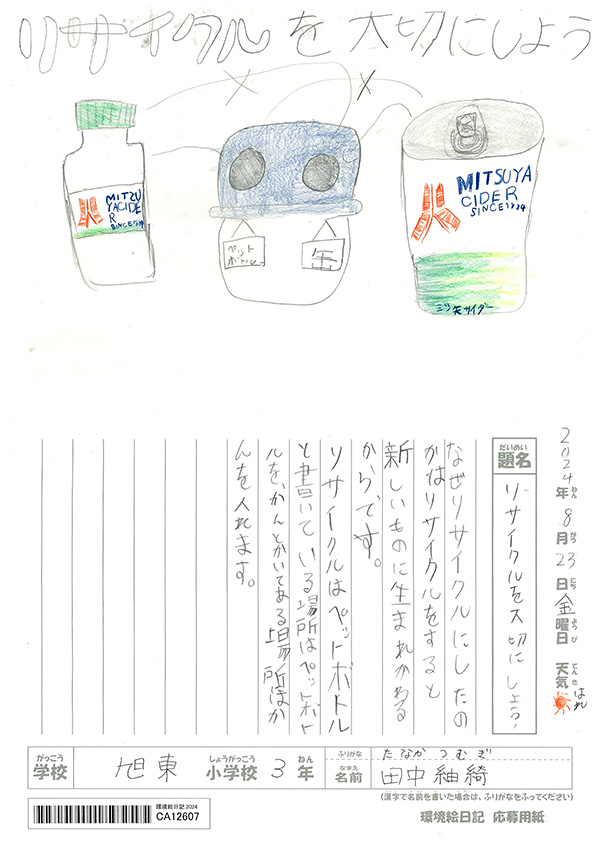 リサイクルを大切にしよう
MITZU
YACIDE
R
SINCE1884
ペット
ボトル
缶
MITSUYA
CIDER
SINCE1884
三ツ矢サイダー
2024年8月23日金曜日天気はれ
ねん
がつ
にち
ようび
てんき
だいめい
題名
リサイクルを大切にしよう
なぜリサイクルにしたの
かはリサイクルをすると
新しいものに生まれかわる
からです。
リサイクルはペットボトル
と書いている場所はペットボト
ルを、かんとかいてある場所はか
んを入れます。
がっこう
学校
旭東
しょうがっこう
小学校
3
ねん
年
ふりがな
たなか つむぎ
なまえ
名前
田中紬綺
(漢字で名前を書いた場合は、ふりがなをふってください)
環境絵日記 2024
CA12607
環境絵日記 応募用紙